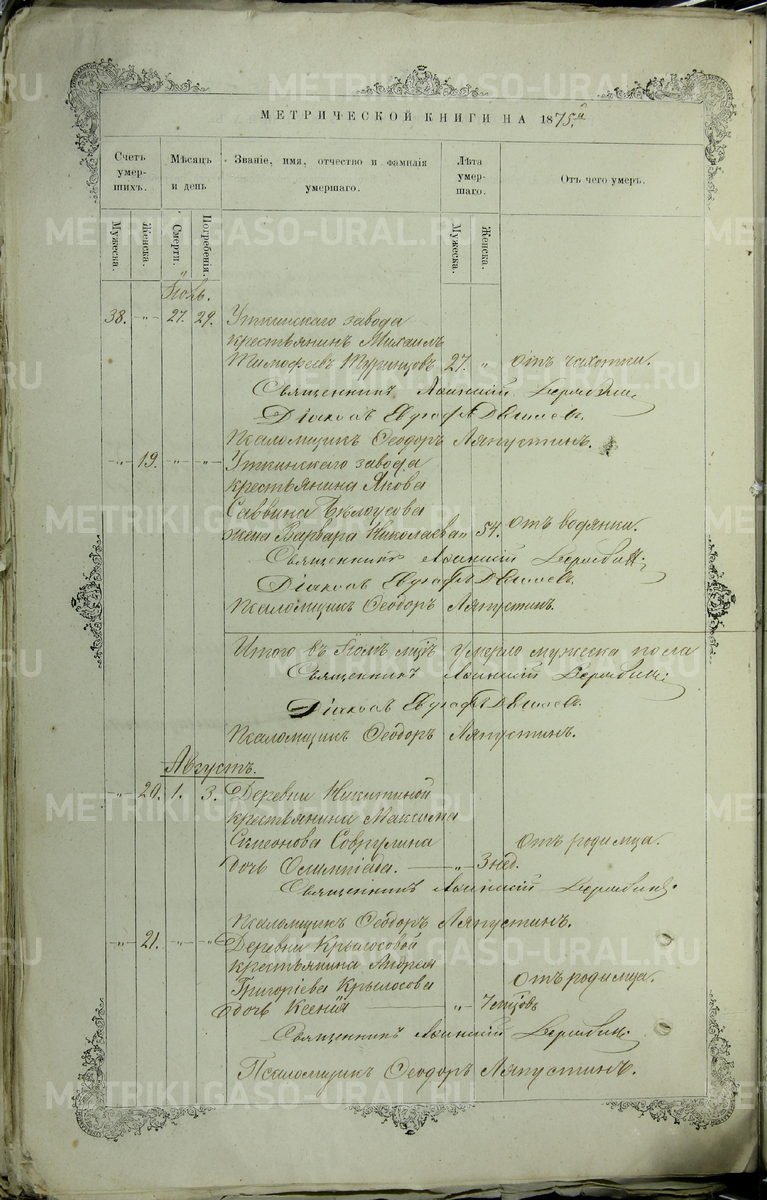 МЕТРИЧЕСКОЙ КНИГИ НА 1875й
Счетъ умер-шихъ.
Мѣсяцъ и день
Званіе, имя, отчество и фамилія умершаго.
Лѣта умер-шаго.
Отъ чего умеръ.
Мужеска.
Женска.
Смерти.
Погребенія.
Мужеска.
Женска.
Іюль.
38. " 27. 29. Уткинскаго завода
крестьянинъ Михаилъ
Тимофеевъ 27. " отъ чахотки.
Священникъ
Діаконъ
Псаломщикъ Ѳеодоръ Ляпустинъ.
" 19. " " Уткинскаго завода
крестьянина Якова
Саввина Бѣлоусова
жена Варвара Николаева " 54. отъ водянки.
Священникъ
Діаконъ
Псаломщикъ Ѳеодоръ Ляпустинъ.
Итого въ Іюлѣ мцѣ умерло мужеска пола
Священникъ
Діаконъ
Псаломщикъ Ѳеодоръ Ляпустинъ.
Августъ.
" 20. 1. 3. Деревни Никитиной
крестьянина Максима
Симеонова Совгулина
дочь Олимпіада. " 3 нед. отъ родимца.
Священникъ
Псаломщикъ Ѳеодоръ Ляпустинъ.
" 21. " " Деревни Крылосовой
крестьянина Андрея
Григоріева Крылосова
дочь Ксенія " отъ родимца.
Священникъ
Псаломщикъ Ѳеодоръ Ляпустинъ.
METRIKI.GASO-URAL.RU